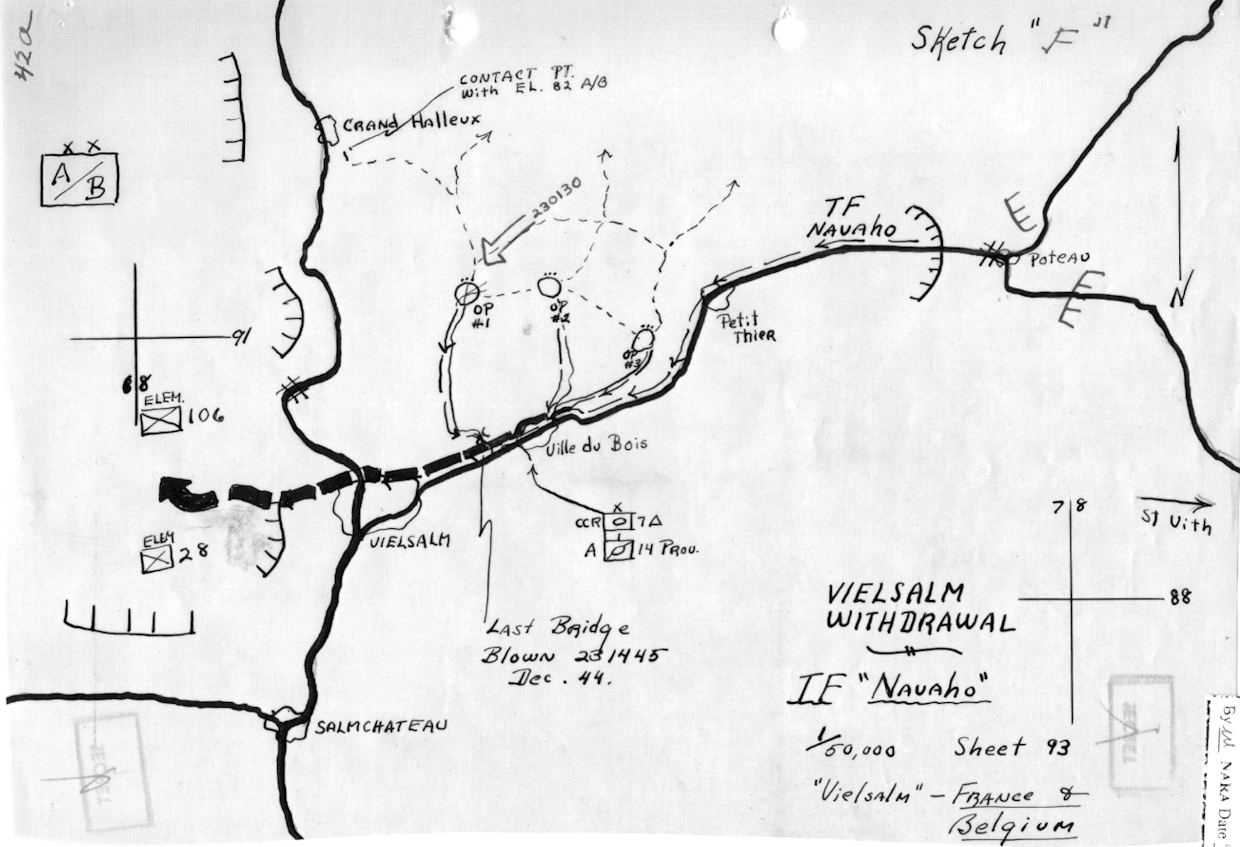 42a
Sketch "F"
CONTACT PT.
With EL. 82 A/B
GRAND Halleux
X X
A/B
230130
TF
NAVAho
Poteau
N
OP
#1
OP
#2
OP
#3
Petit
Thier
91
68
ELEM.
106
Ville du Bois
X
CCR 7Δ
A 14 Prov.
VIELSALM
ELEM
28
78
St Vith
88
Last Bridge
Blown 231445
Dec. 44.
VIELSALM
WITHDRAWAL
TF "Navaho"
SALMCHATEAU
1/50,000 Sheet 93
"Vielsalm" - FRANCE &
Belgium
By NARA Date